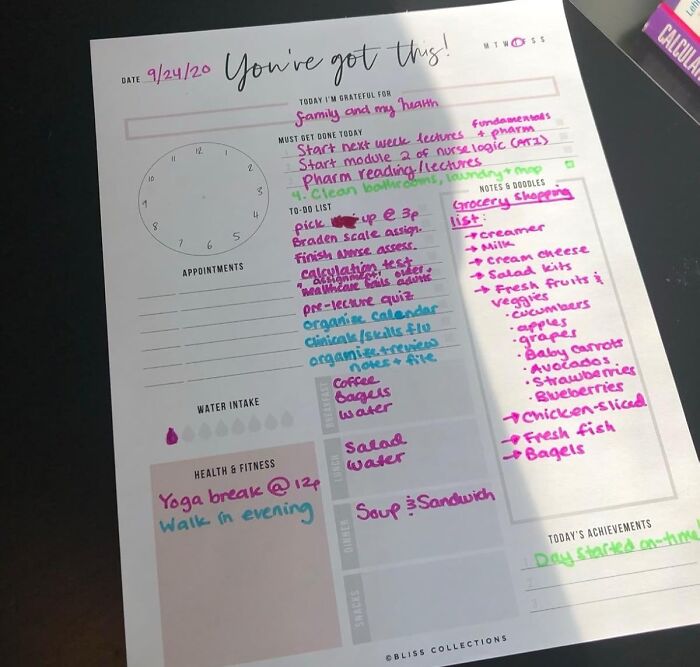 DATE 9/24/20
You've got this!
M T W T F S S
TODAY I'M GRATEFUL FOR
family and my health
MUST GET DONE TODAY
1 Start next week lectures fundamentals + pharm
Start module 2 of nurse logic (ATI)
Pharm reading/lectures
4. Clean bathrooms, laundry + mop
12
1
2
3
4
5
6
7
8
9
10
11
APPOINTMENTS
TO-DO LIST
pick up @ 3p
Braden scale assign.
Finish nurse assess.
calculation test
" assignment, older +
healthcare tools adults
pre-lecture quiz
organize calendar
clinicals/skills f/u
organize + review
notes + file
NOTES & DOODLES
Grocery shopping
list:
→ creamer
→ Milk
→ Cream cheese
→ Salad kits
→ Fresh fruits &
veggies
• cucumbers
• apples
• grapes
• Baby carrots
• Avocados
• Strawberries
• Blueberries
→ Chicken-sliced
→ Fresh fish
→ Bagels
WATER INTAKE
HEALTH & FITNESS
Yoga break @ 12p
Walk in evening
BREAKFAST
Coffee
Bagels
Water
LUNCH
Salad
Water
DINNER
Soup & Sandwich
SNACKS
TODAY'S ACHIEVEMENTS
1 Day started on-time
2
3
©BLISS COLLECTIONS